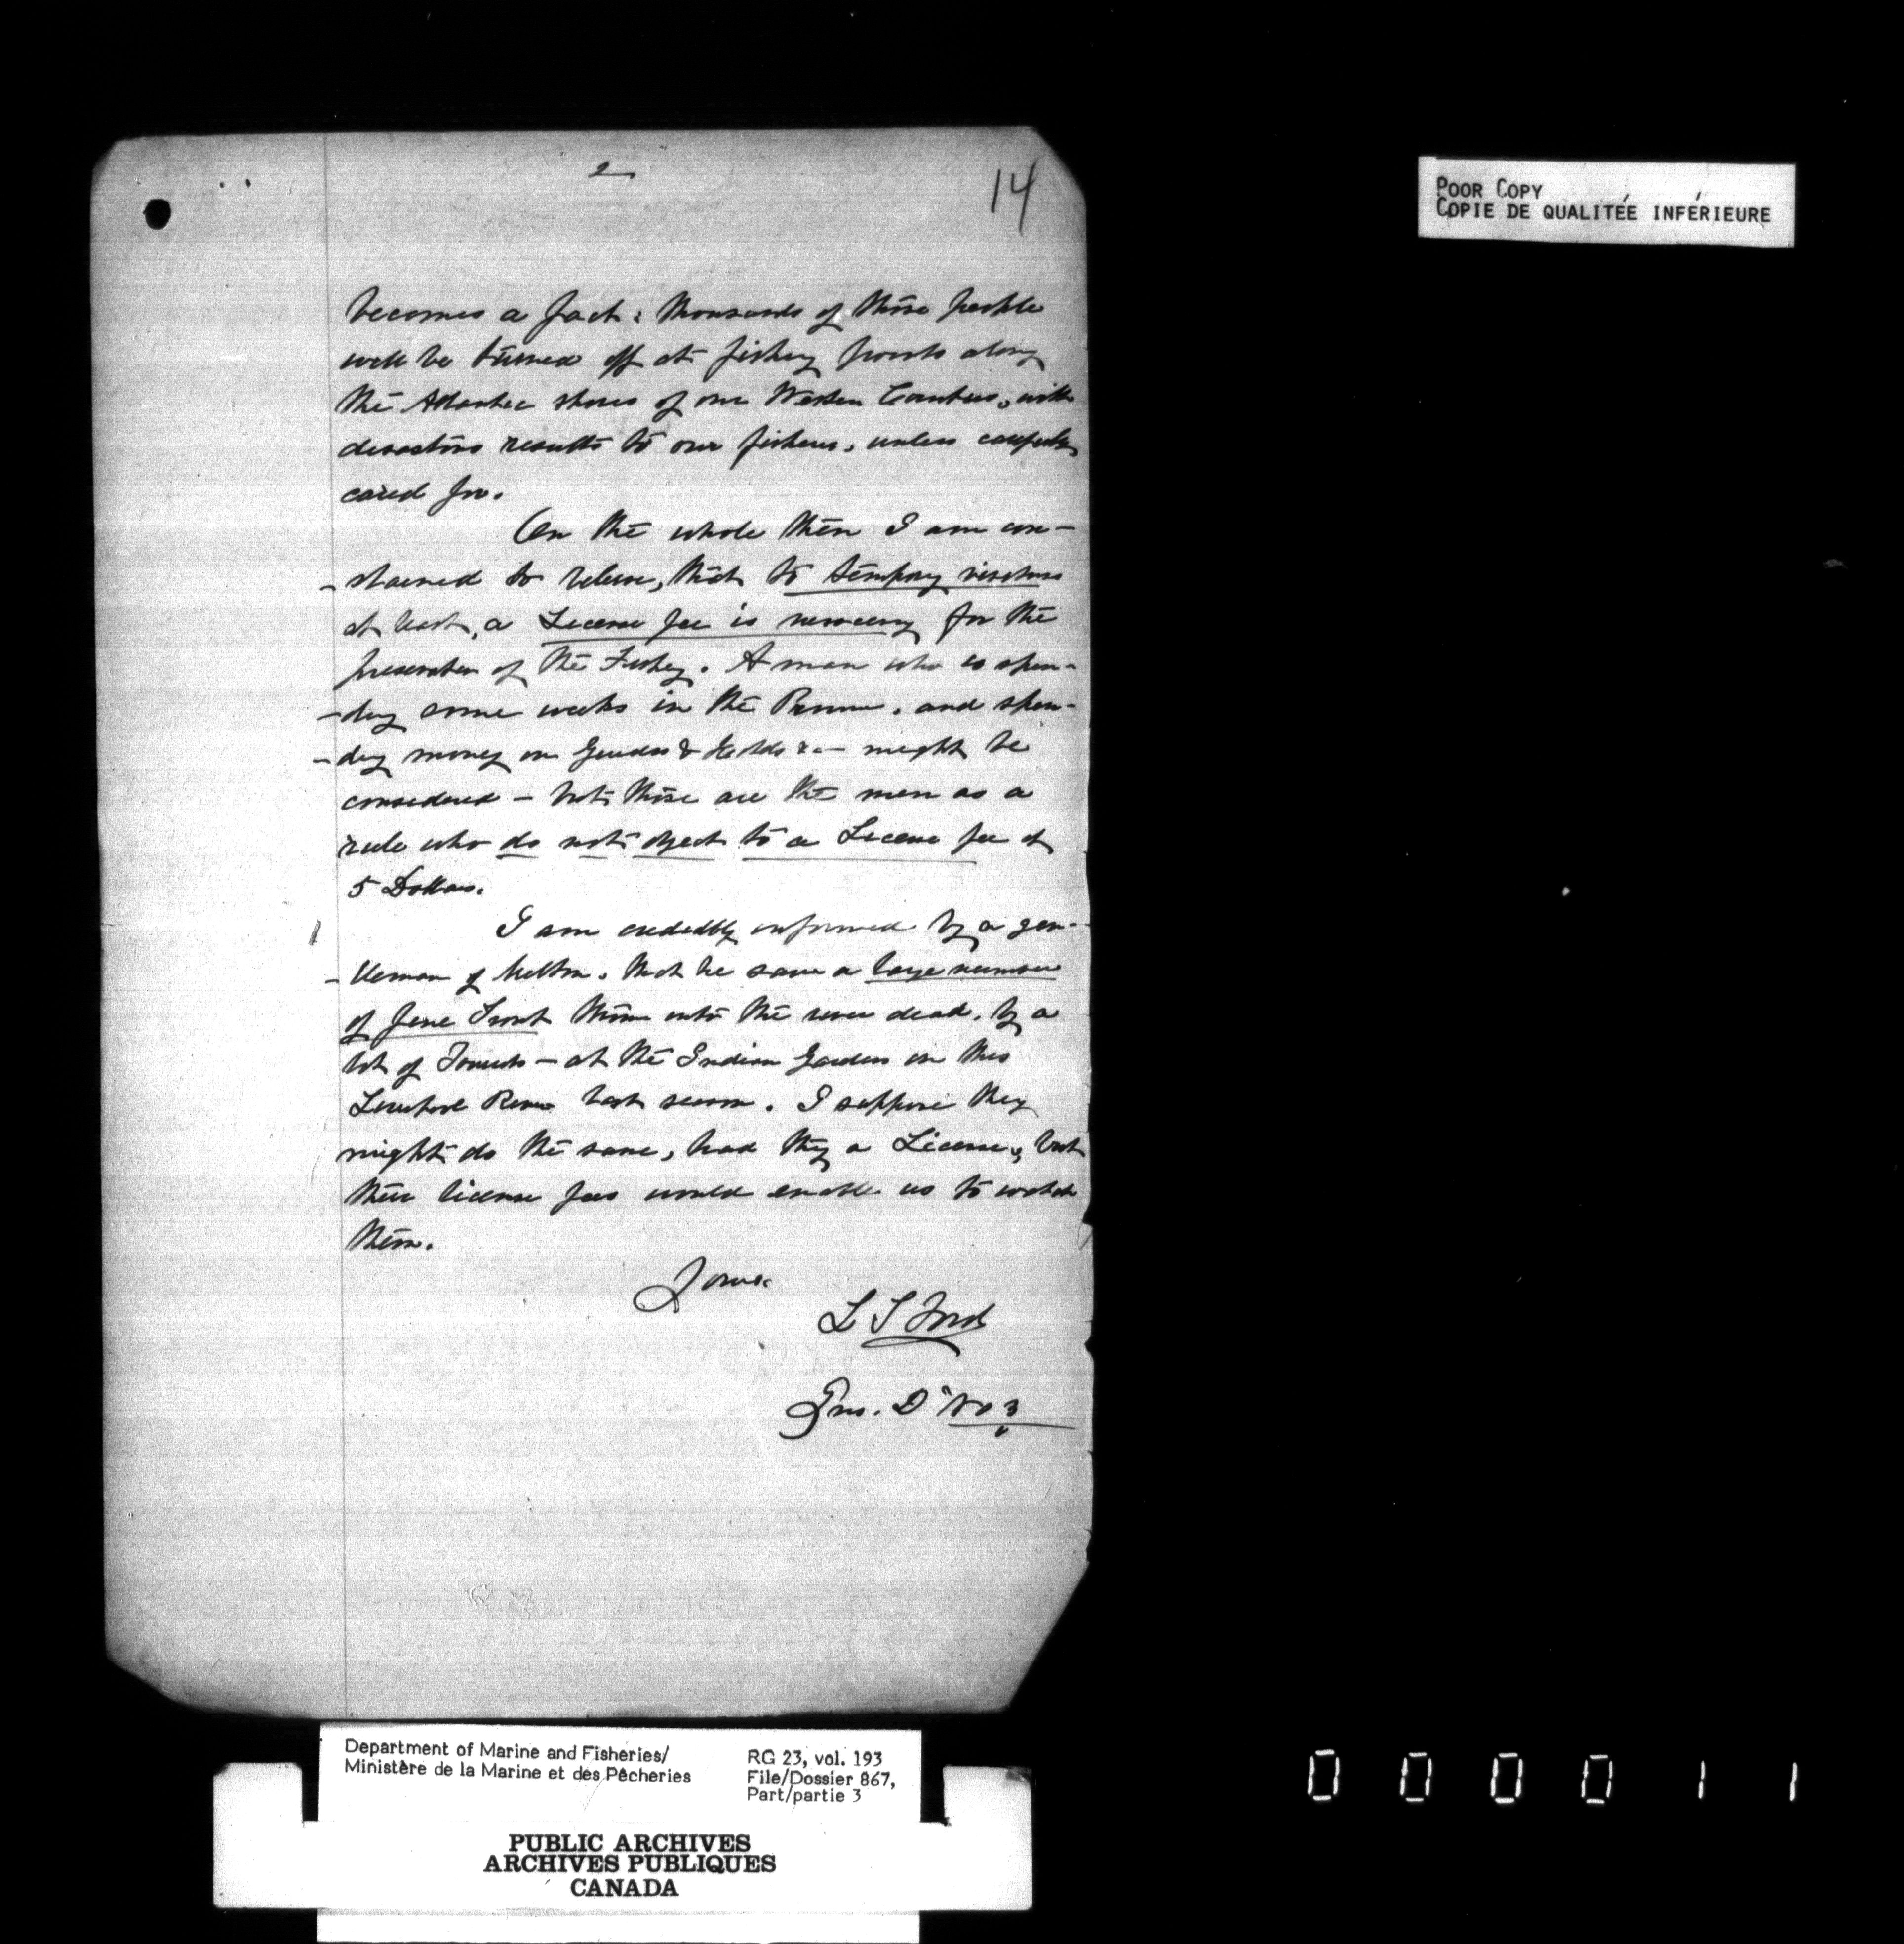 2
14
POOR COPY
COPIE DE QUALITÉE INFÉRIEURE
becomes a fact; thousands of these people
will be turned off at fishing points along
the Atlantic shores of our Western Counties, with
disastrous results to our fisheries, unless carefully
cared for.
On the whole then I am con-
-strained to believe, that to tempory visitors
at least, a License fee is necessary for the
preservation of the Fishery. A man who is spen-
-ding some weeks in the Province, and spen-
-ding money on Guides & Hotels &c— might be
considered — but these are the men as a
rule who do not object to a License fee of
5 Dollars.
I am credibly informed by a gen-
-tleman of Milton, that he saw a large number
of fine Trout thrown into the river dead, by a
lot of Tourists — at the Indian Gardens on this
Liverpool River last season. I suppose they
might do the same, had they a License, but
their license fees would enable us to watch
them.
Yours
L S Ford
Ins. D No 3
Department of Marine and Fisheries/
Ministère de la Marine et des Pêcheries
RG 23, vol. 193
File/Dossier 867,
Part/partie 3
PUBLIC ARCHIVES
ARCHIVES PUBLIQUES
CANADA
000011